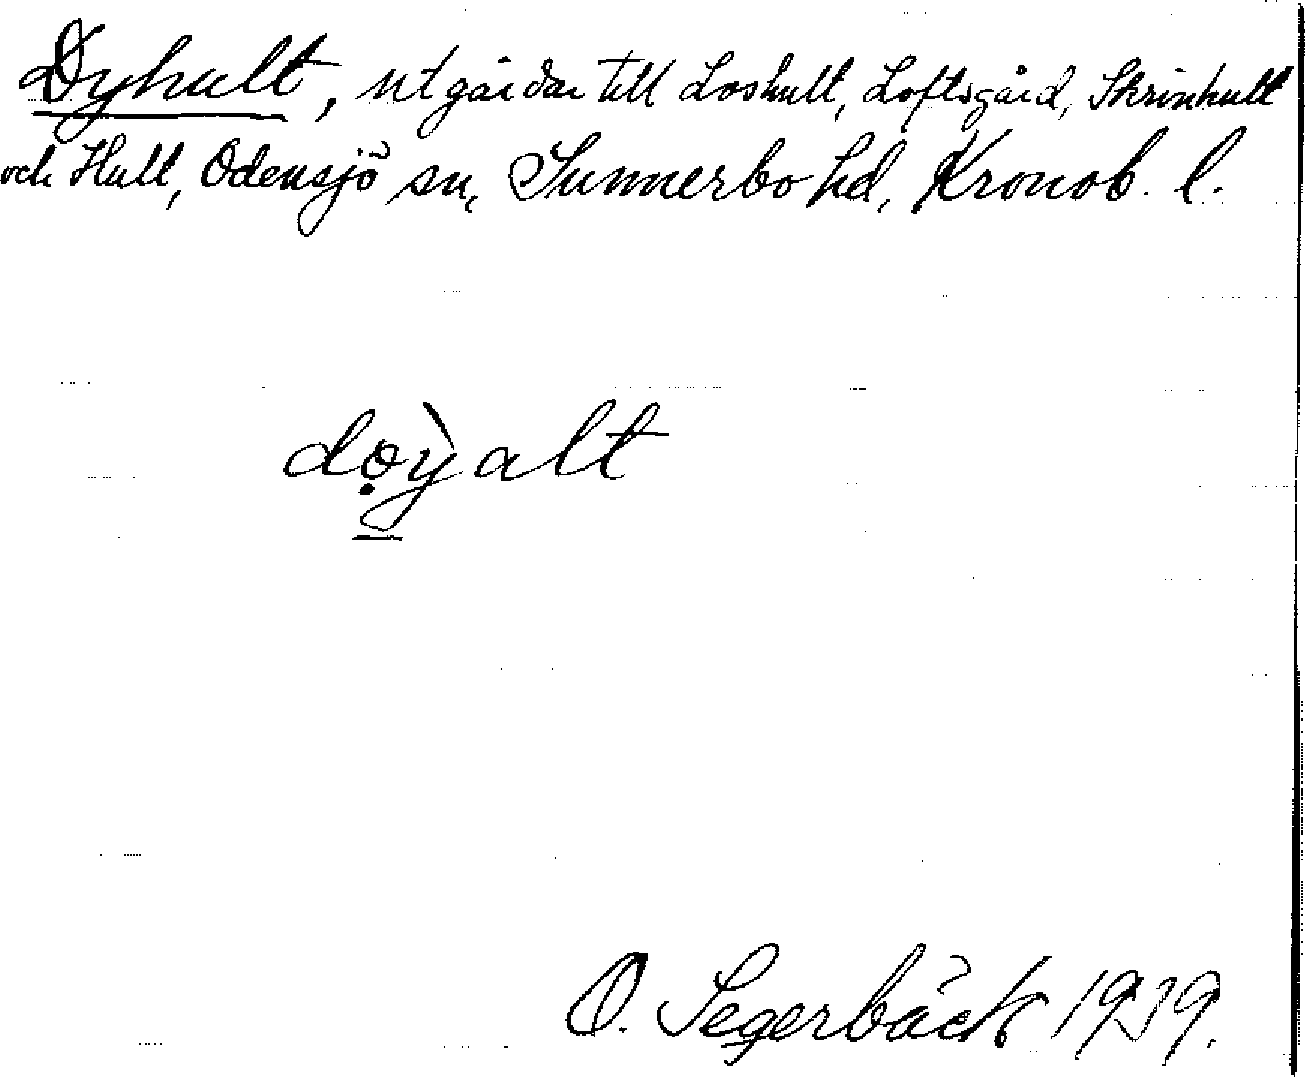 Dyhult, utgårdar till Loshult, Loftsgård, Skrinhult
och Hult, Odensjö sn, Sunnerbo hd, Kronob. l.
dọỳalt
O. Segerbäck 1939.